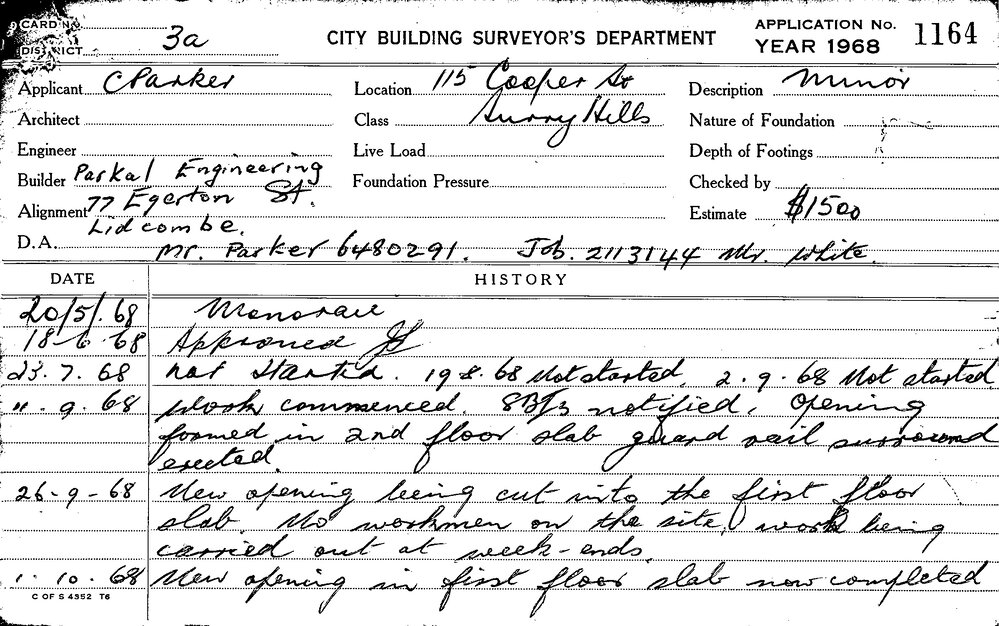 CARD No. 3a CITY BUILDING SURVEYOR'S DEPARTMENT APPLICATION No. 1164
DISTRICT YEAR 1968
Applicant C Parker Location 115 Cooper St Description Minor
Architect Class Surry Hills Nature of Foundation
Engineer Live Load Depth of Footings
Builder Parkal Engineering Foundation Pressure Checked by
Alignment 77 Egerton St. Estimate $1500
Lidcombe.
D.A. Mr. Parker 6480291. Job. 2113144 Mr. White.
DATE HISTORY
20/5/.68 Monorail
18-6-68 Approved
23.7.68 Not Started. 19 8.68 Not started. 2.9.68 Not started
11.9.68 Work commenced. notified. Opening
formed in 2nd floor slab guard rail surround
erected.
26-9-68 New opening being cut into the first floor
slab. No workmen on the site, work being
carried out at week-ends.
1.10.68 New opening in first floor slab now completed
C OF S 4352 T6